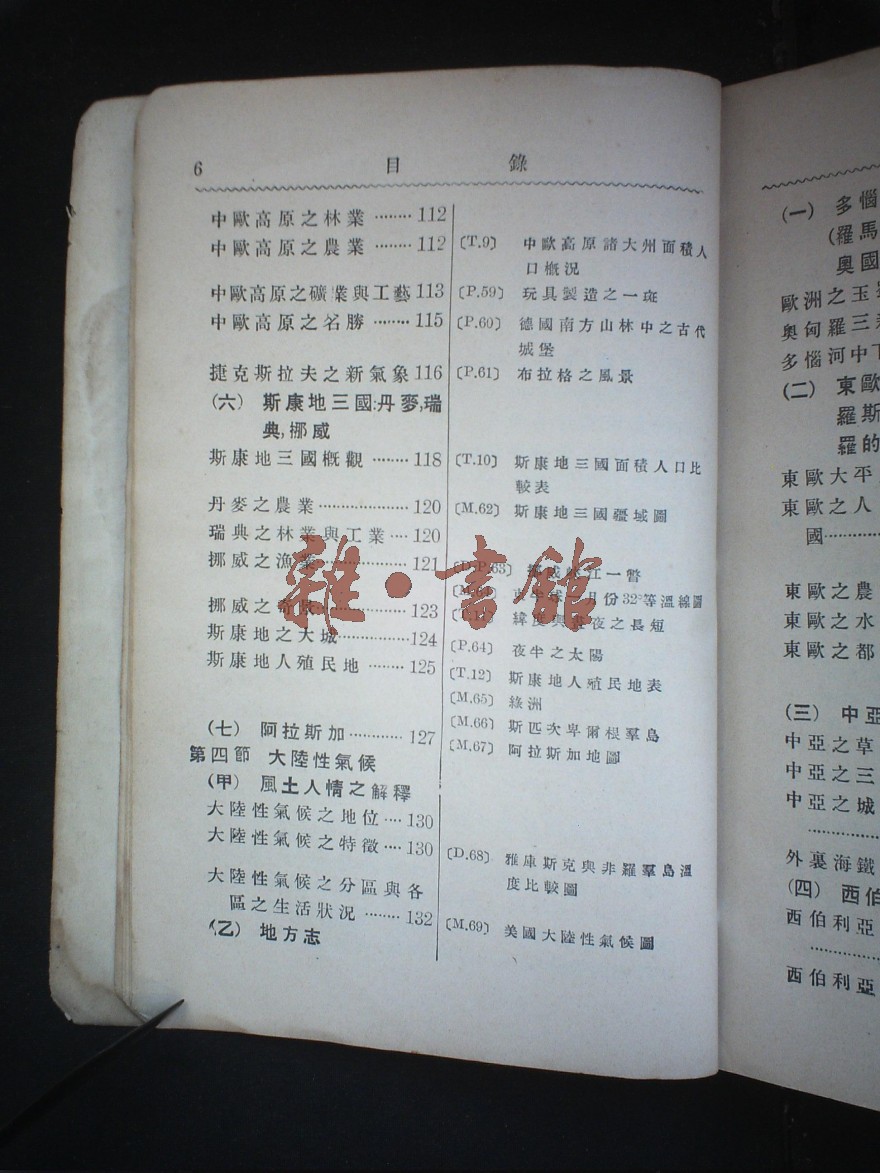 6 目錄
中歐高原之林業 ········ 112
中歐高原之農業 ········ 112
中歐高原之礦業與工藝 113
中歐高原之名勝 ······· 115
捷克斯拉夫之新氣象 116
(六) 斯康地三國:丹麥,瑞
典,挪威
斯康地三國概觀 ········ 118
丹麥之農業 ··················· 120
瑞典之林業與工業 ···· 120
挪威之漁業 ··················· 121
挪威之奇 ··················· 123
斯康地之大城 ··············· 124
斯康地人殖民地 ········ 125
(七) 阿拉斯加 ············ 127
第四節 大陸性氣候
(甲) 風土人情之解釋
大陸性氣候之地位 ···· 130
大陸性氣候之特徵 ···· 130
大陸性氣候之分區與各
區之生活狀況 ········ 132
(乙) 地方志
〔T.9〕 中歐高原諸大州面積人
口概況
〔P.59〕 玩具製造之一斑
〔P.60〕 德國南方山林中之古代
城堡
〔P.61〕 布拉格之風景
〔T.10〕 斯康地三國面積人口比
較表
〔M.62〕 斯康地三國疆域圖
〔D.P.63〕 挪威峽江一瞥
〔M.64〕 月份32°等溫線圖
緯度與晝夜之長短
〔P.64〕 夜半之太陽
〔T.12〕 斯康地人殖民地表
〔M.65〕 綠洲
〔M.66〕 斯匹次卑爾根羣島
〔M.67〕 阿拉斯加地圖
〔D.68〕 雅庫斯克與非羅羣島溫
度比較圖
〔M.69〕 美國大陸性氣候圖
雜·書館
(一) 多惱
(羅馬
奧國
歐洲之玉
奧匈羅三
多惱河中下
(二) 東歐
羅斯
羅的
東歐大平
東歐之人
國··············
東歐之農
東歐之水
東歐之都
(三) 中亞
中亞之草
中亞之三
中亞之城
··············
外裏海鐵
(四) 西伯
西伯利亞
··············
西伯利亞